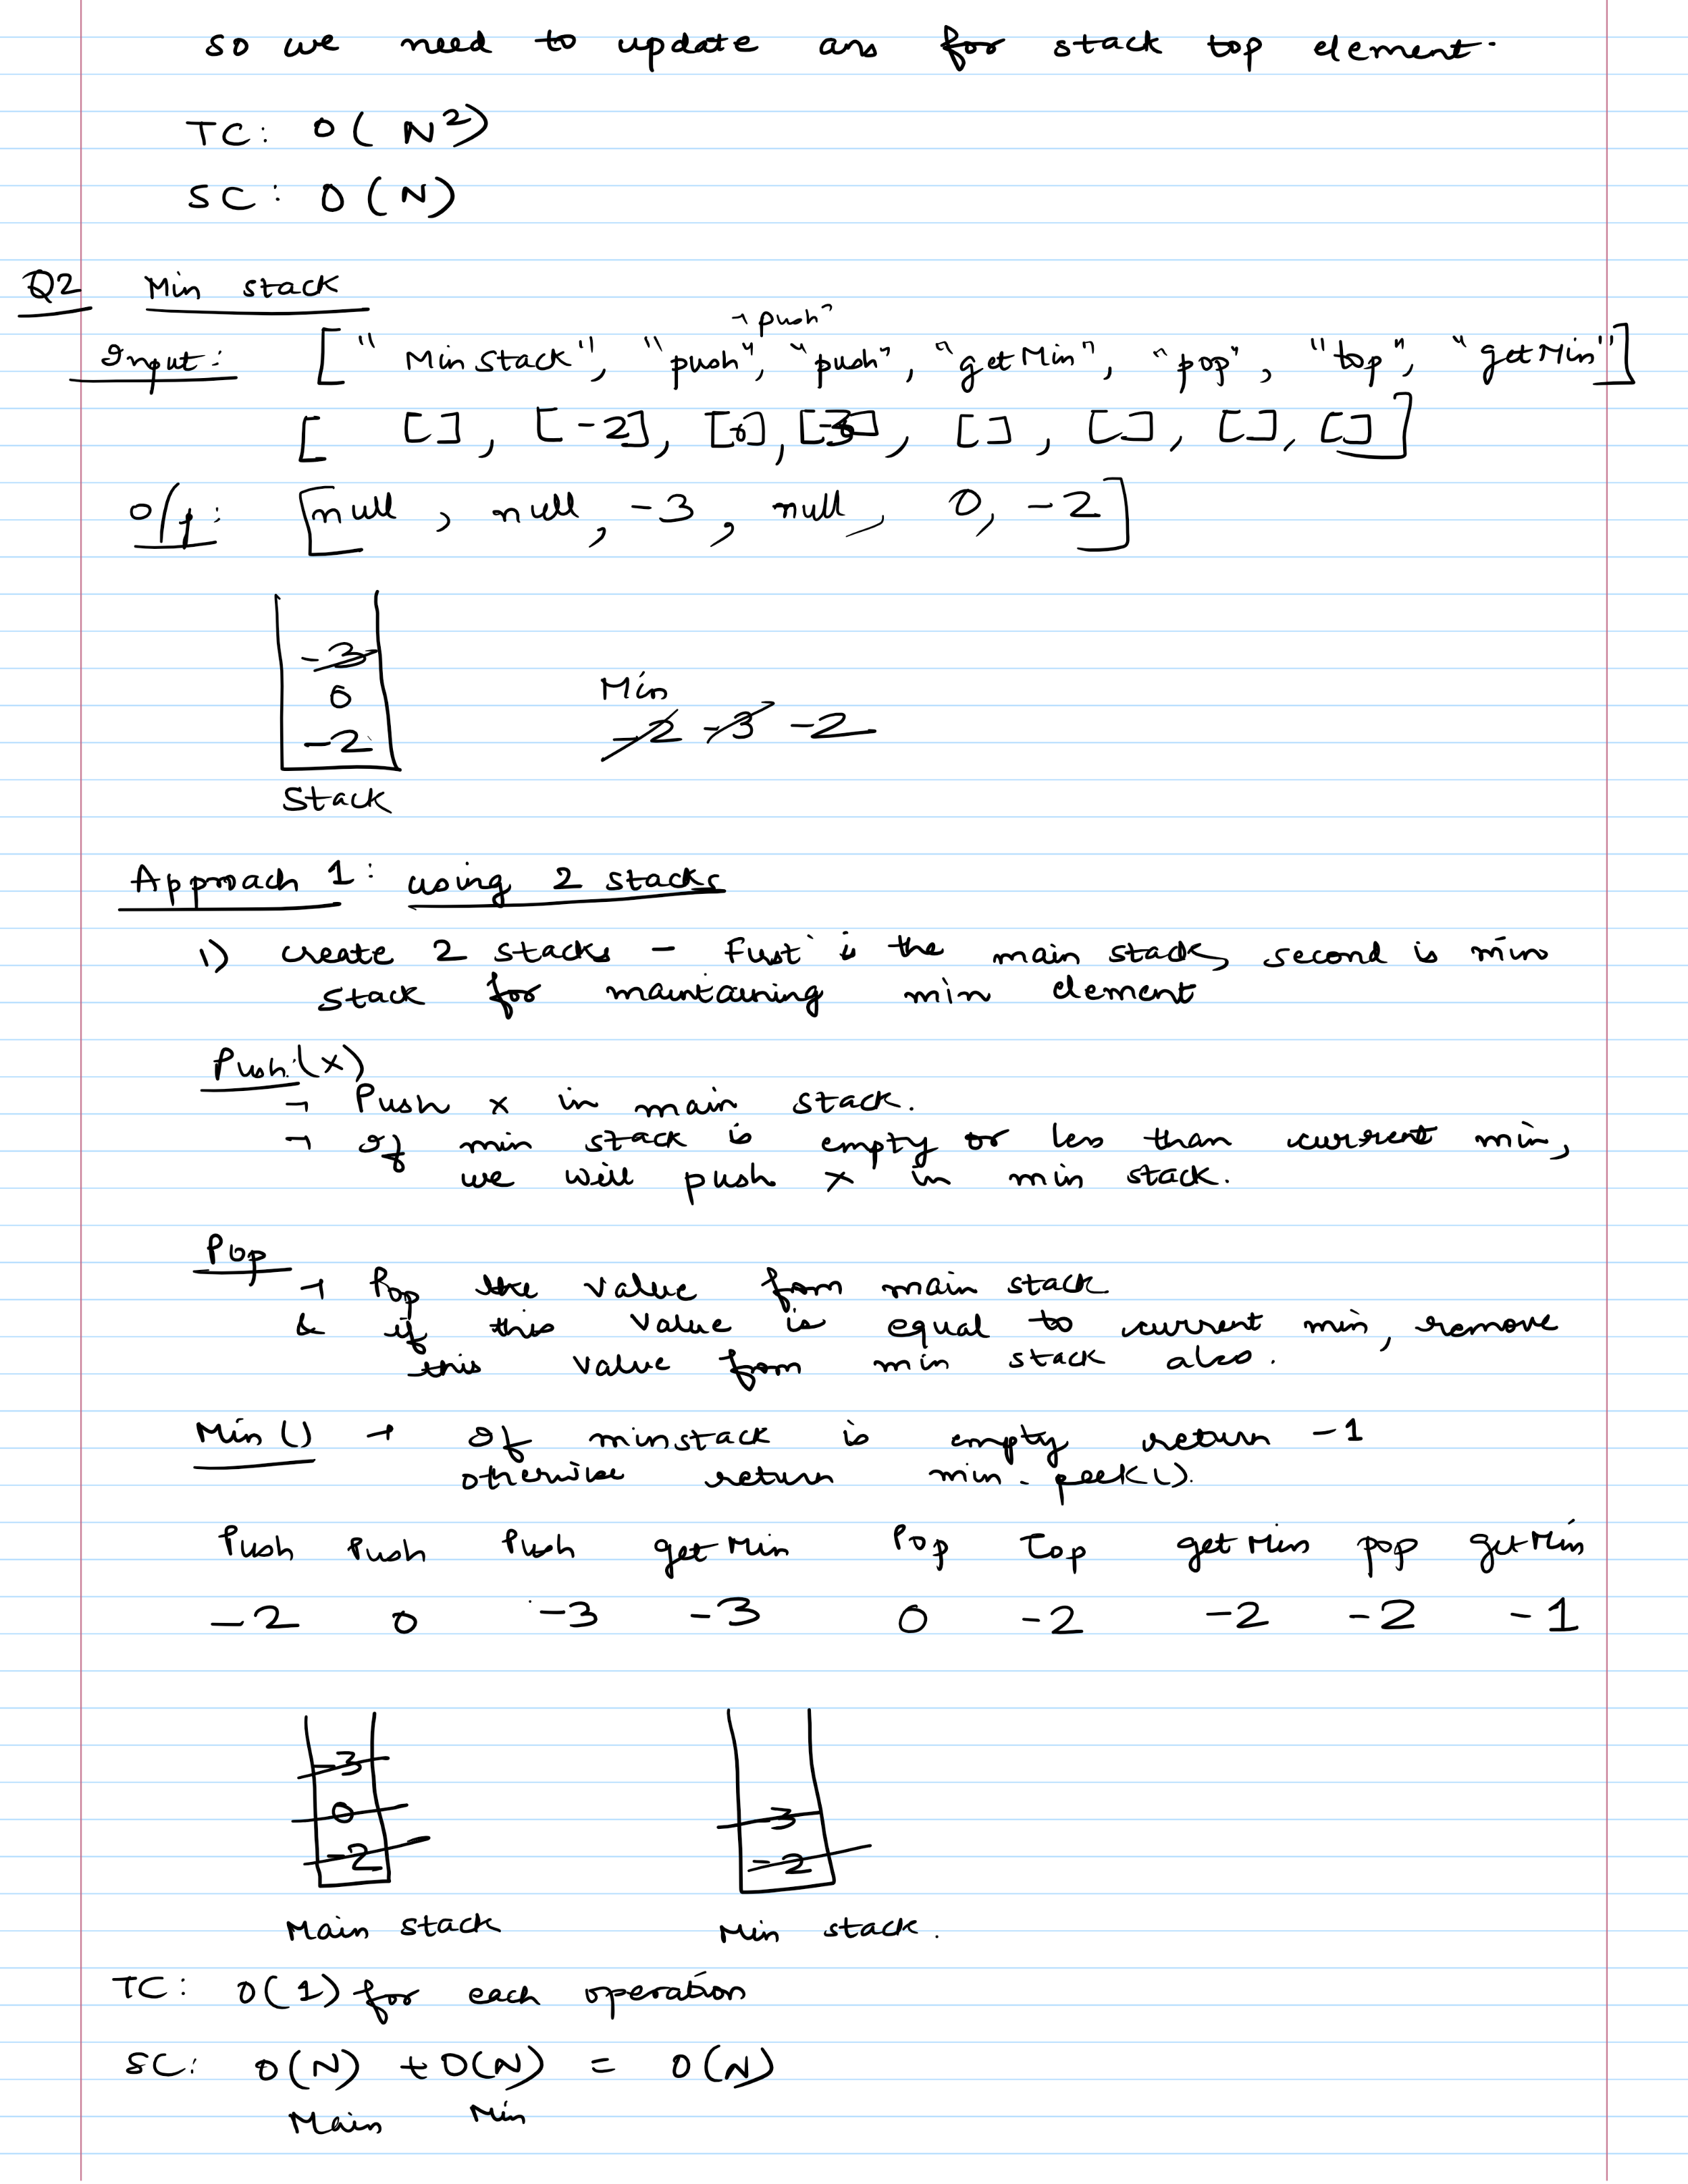 so we need to update ans for stack top element.
TC: O( N²)
SC: O(N)
Q2 Min stack
"push"
Input: [" MinStack", "push", "push", "getMin", "pop", "top", "getMin"]
[ [], [-2], [0], [-3], [], [], [], []]
O/p: [null, null, -3, null, 0, -2]
-3
0
Min
-2
-2 -3 -2
Stack
Approach 1: using 2 stacks
1) create 2 stacks - First is the main stack, second is min
stack for maintaining min element
Push(x)
→ Push x in main stack.
→ If min stack is empty or less than current min,
we will push x in min stack.
Pop
→ Pop the value from main stack
& if this value is equal to current min, remove
this value from min stack also.
Min() → If minstack is empty return -1
otherwise return min.peek().
Push Push Push getMin Pop Top getMin pop getMin
-2 0 -3 -3 0 -2 -2 -2 -1
-3
0 -3
-2 -2
Main stack Min stack.
TC: O(1) for each operation
SC: O(N) + O(N) = O(N)
Main Min